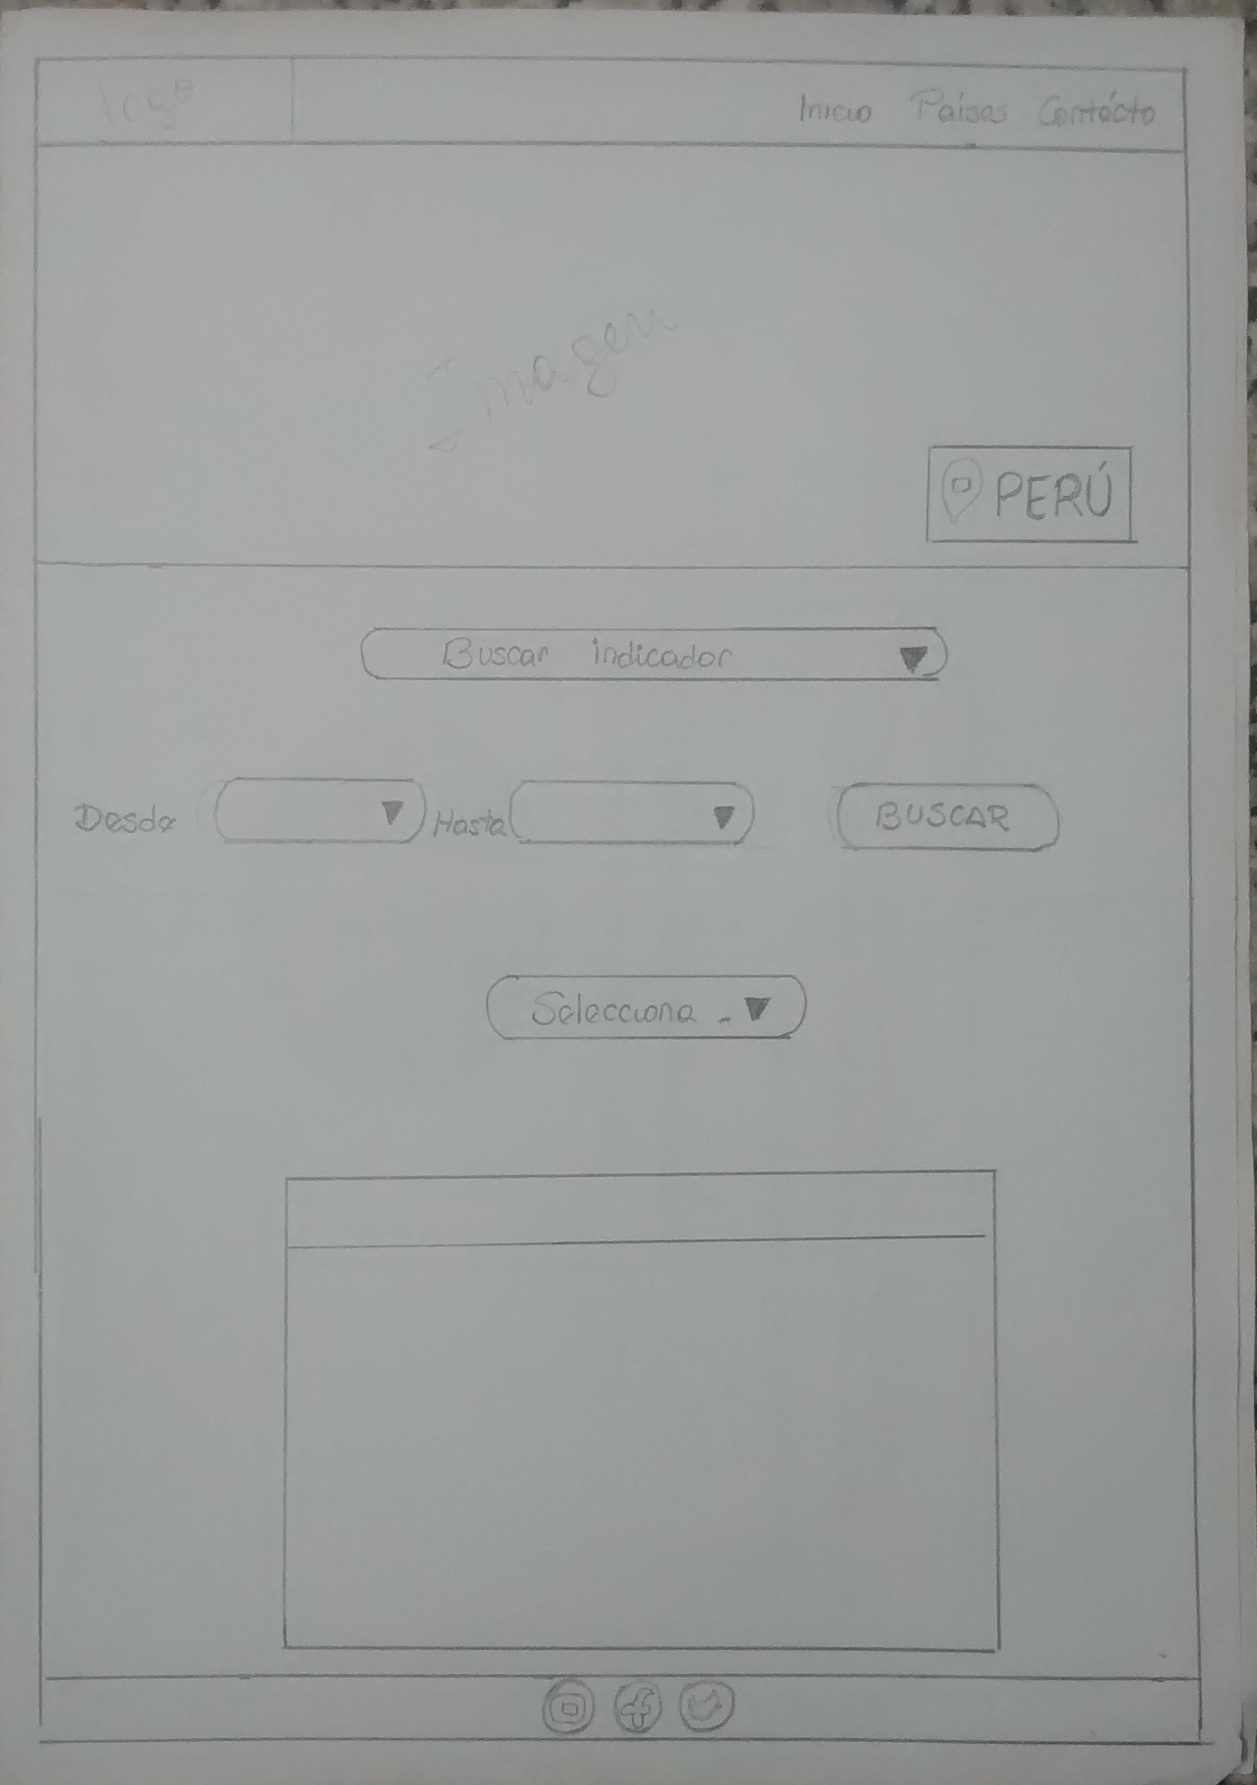 logo
Inicio Países Contácto
Imagen
PERÚ
Buscar indicador
Desde Hasta BUSCAR
Selecciona